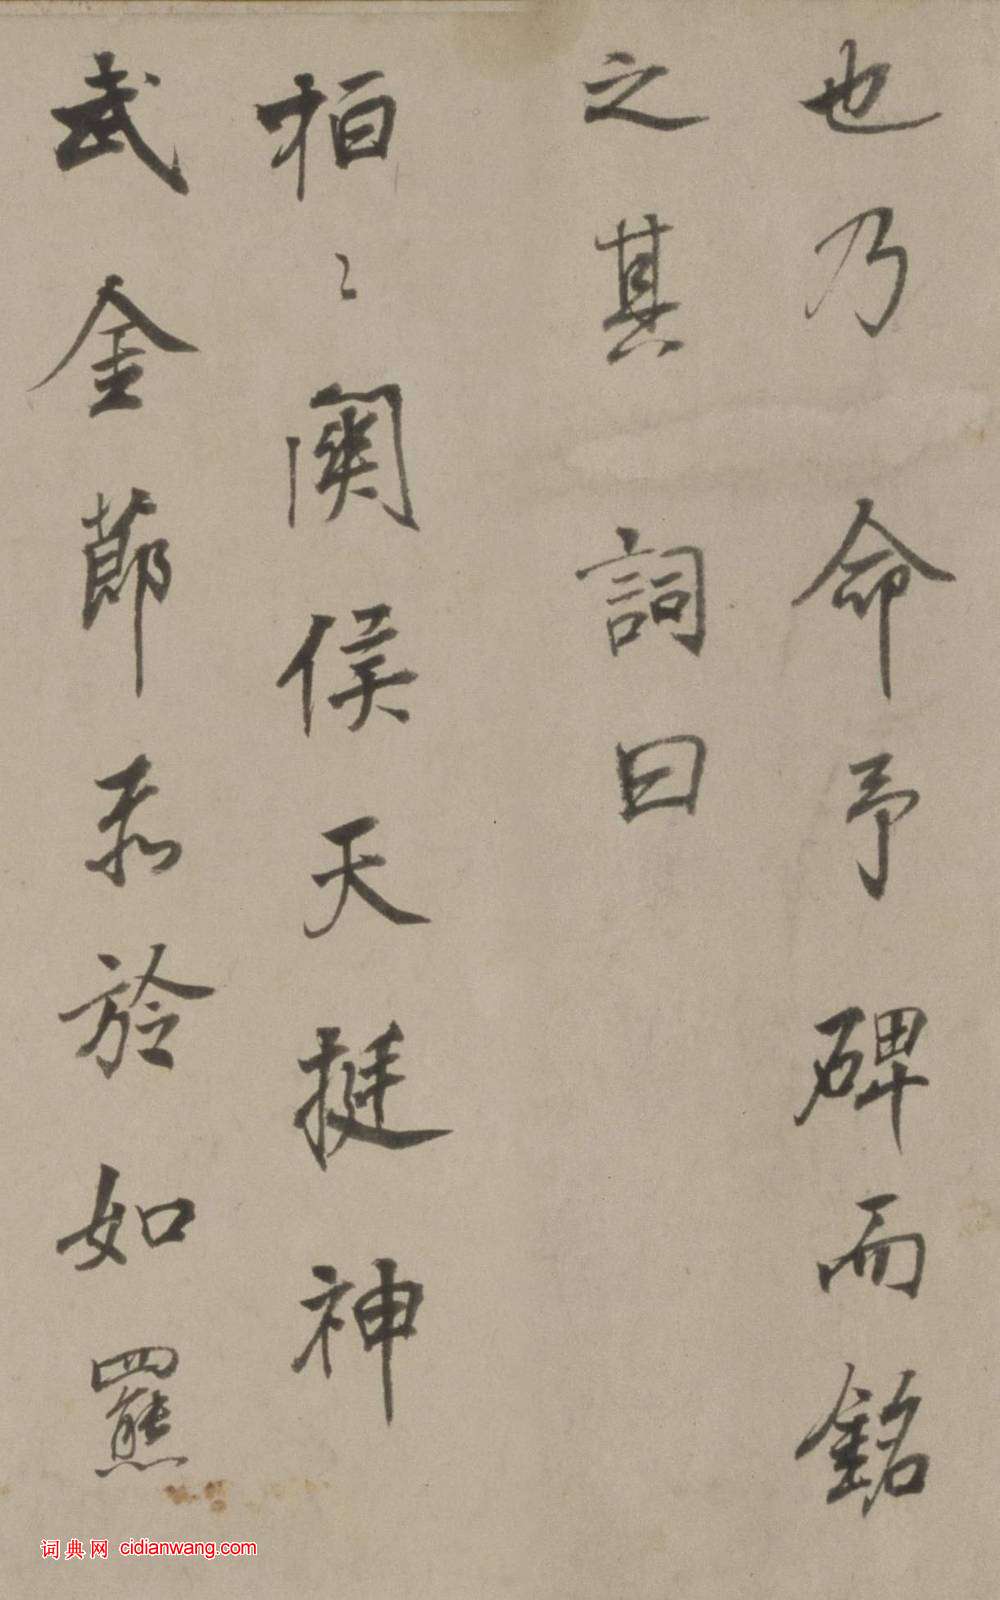 也乃命予碑而銘
之其詞曰
桓〻関侯天挺神
武金莭煮於如羆
词典网 cidianwang.com